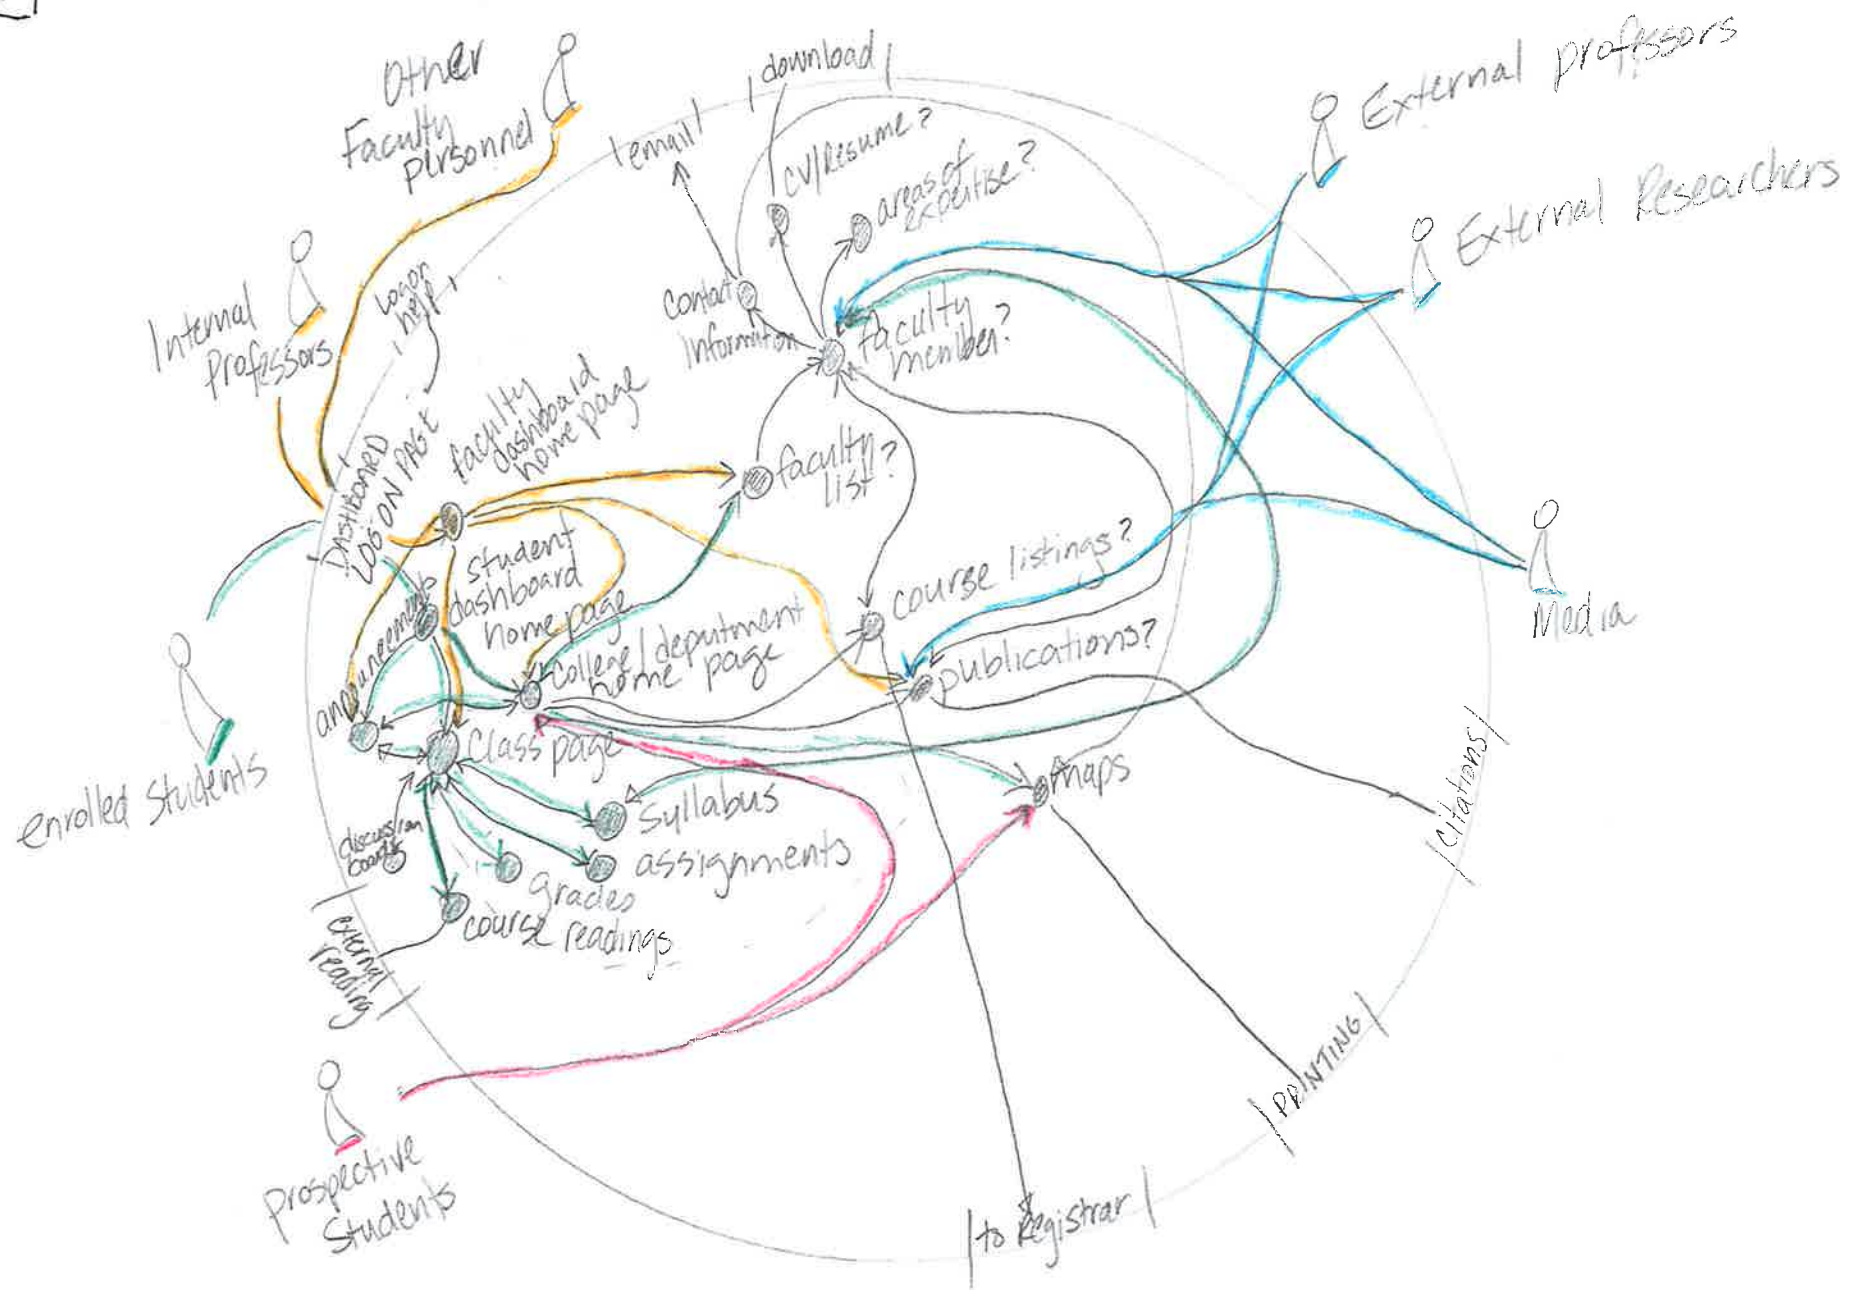 Other
Faculty
personnel
|download|
|email|
CV/Resume?
areas of
expertise?
External professors
External Researchers
Internal
Professors
Logon
help
Contact
Information
faculty
member?
DASHBOARD
LOG ON PAGE
faculty
dashboard
home page
faculty
list?
student
dashboard
home page
course listings?
Media
announcements
College/department
home page
publications?
enrolled Students
Class page
maps
Citations
Syllabus
discussion
boards
assignments
grades
course readings
external
reading
PRINTING
Prospective
Students
|to Registrar|